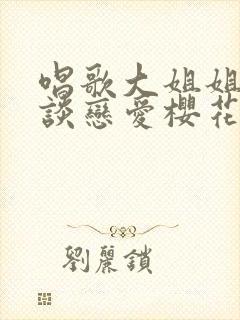 唱歌大姐姐
談戀愛櫻花
劉麗鎖